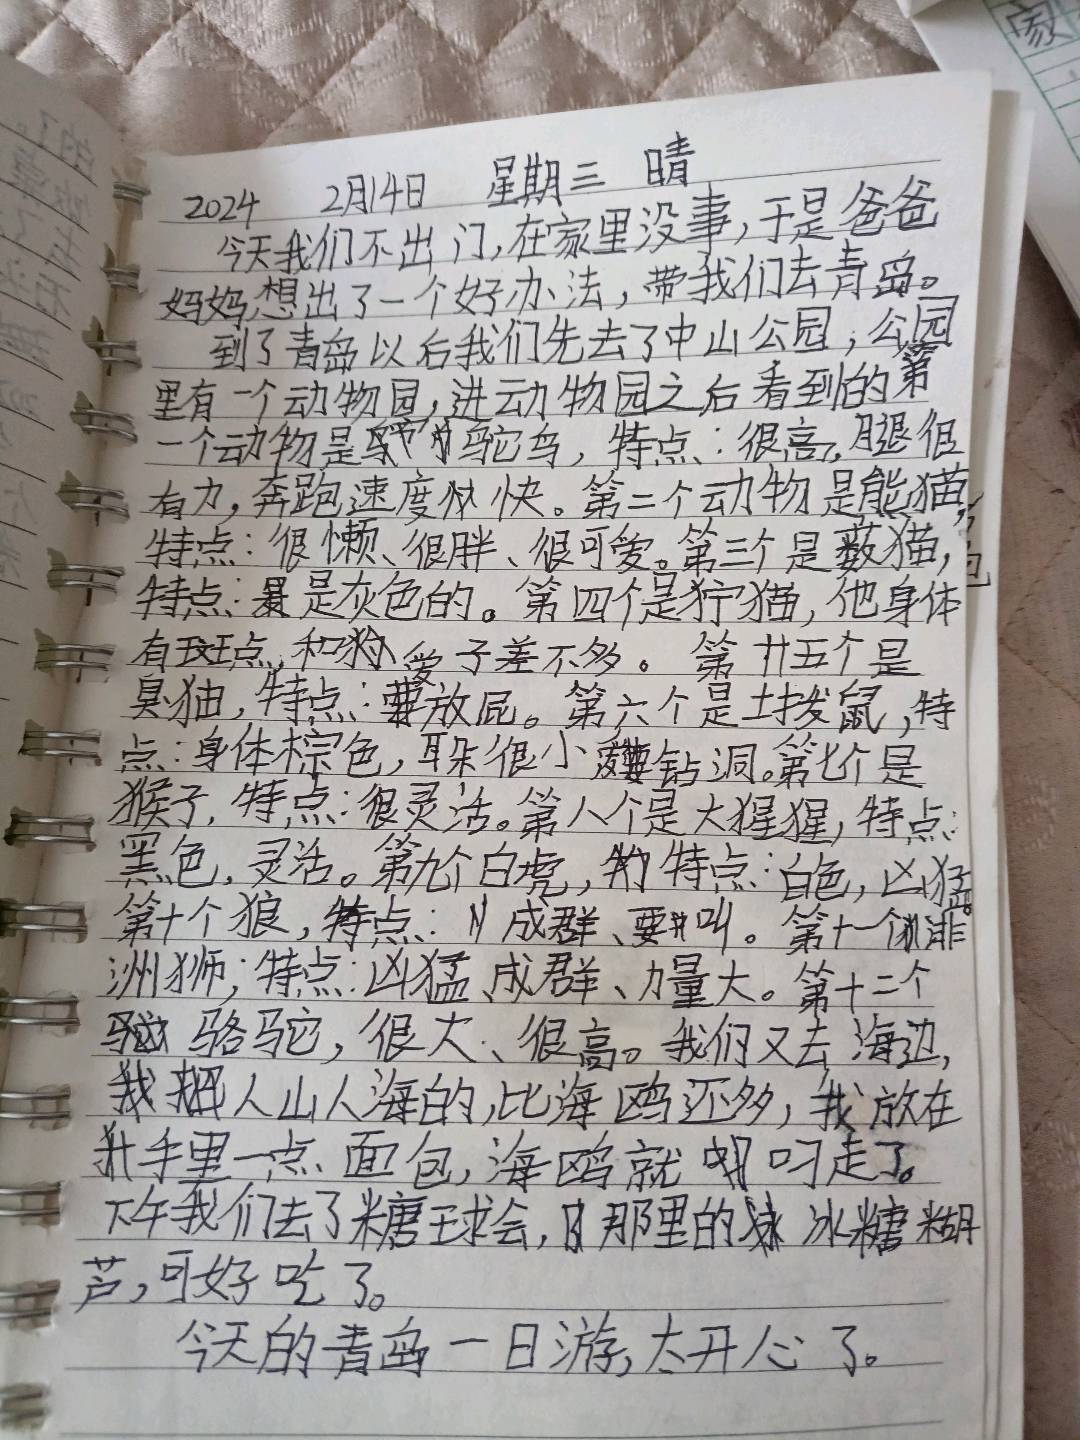 家
2024 2月14日 星期三 晴
今天我们不出门,在家里没事,于是爸爸
妈妈想出了一个好办法,带我们去青岛。
到了青岛以后我们先去了中山公园,公园
里有一个动物园,进动物园之后看到的第
一个动物是鸵鸟,特点:很高,腿很
有力,奔跑速度快。第二个动物是熊猫,
特点:很懒、很胖、很可爱。第三个是薮猫,
特点:是灰色的。第四个是狞猫,他身体
有斑点,和豹子差不多。第五个是
臭鼬,特点:爱放屁。第六个是土拨鼠,特
点:身体棕色,耳朵很小爱钻洞。第七个是
猴子,特点:很灵活。第八个是大猩猩,特点:
黑色,灵活。第九个白虎,特点:白色,凶猛。
第十个狼,特点:成群、要叫。第十一个非
洲狮,特点:凶猛、成群、力量大。第十二个
骆驼,很大、很高。我们又去海边,
人山人海的,比海鸥还多,我放在
手里一点面包,海鸥就叼走了。
下午我们去了糖球会,那里的冰糖葫
芦,可好吃了。
今天的青岛一日游,太开心了。